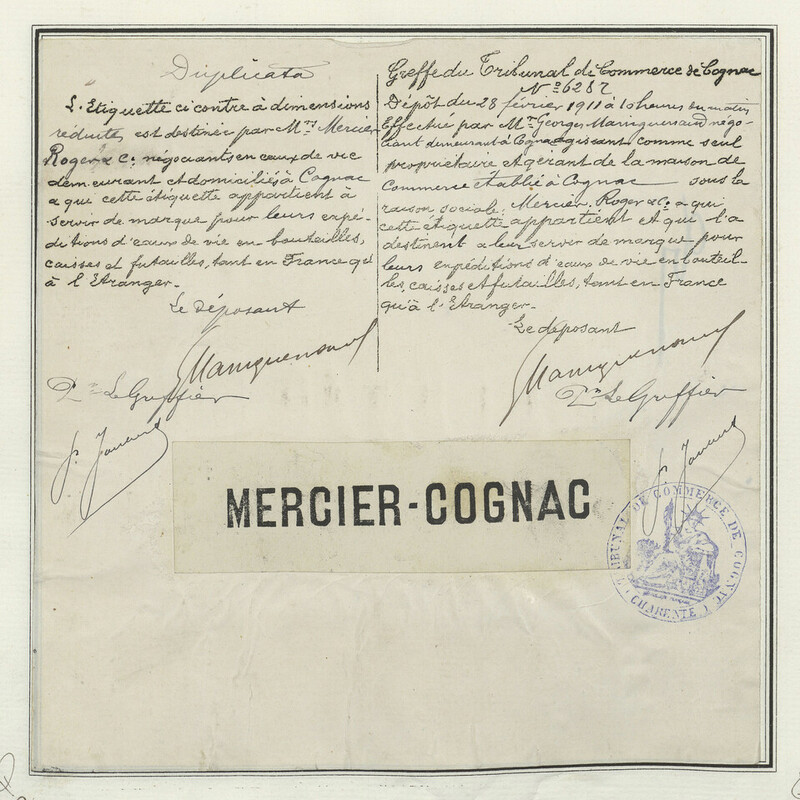 Duplicata
L'Etiquette ci contre à dimensions
reduites est destinée par Mrs Mercier
Roger & Co. négociants en eaux de vie
demeurant et domiciliés à Cognac
a qui cette étiquette appartient à
servir de marque pour leurs expé-
ditions d'eaux de vie en bouteilles,
caisses et futailles, tant en France qu'
à l'Etranger.
Le déposant
Pr Le Greffier
Greffe du Tribunal de Commerce de Cognac
No 6287
Dépôt du 28 février 1911 à 10 heures du matin
Effectué par Mr Georges négo-
ciant demeurant à Cognac agissant comme seul
propriétaire et gérant de la maison de
Commerce établie à Cognac sous la
raison sociale: Mercier, Roger & Co. a qui
cette étiquette appartient et qui l'a
destinent a leur servir de marque pour
leurs expéditions d'eaux de vie en bouteil-
les, caisses et futailles, tant en France
qu'à l'Etranger.
Le déposant
Pr Le Greffier
MERCIER-COGNAC
TRIBUNAL DE COMMERCE DE COGNAC
(CHARENTE)